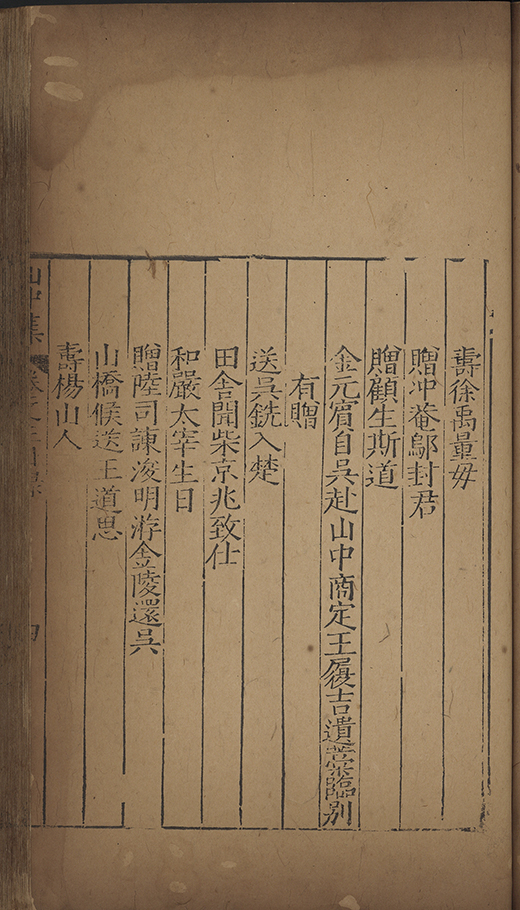 壽徐禹量毋
贈冲菴鄔封君
贈顧生斯道
金元賔自吳赴山中商定王履吉遺藁臨別
有贈
送吳銑入楚
田舍聞柴京兆致仕
和嚴太宰生日
贈陸司諫浚明游金陵還吳
山橋候送王道思
壽楊山人
山中集